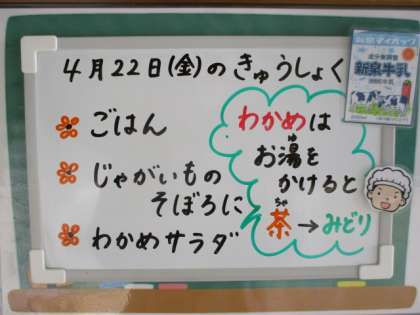 4月22日(金)のきゅうしょく
ごはん
じゃがいもの
そぼろに
わかめサラダ
わかめは
お湯を
ゆ
かけると
ちゃ
茶→みどり
新泉牛乳